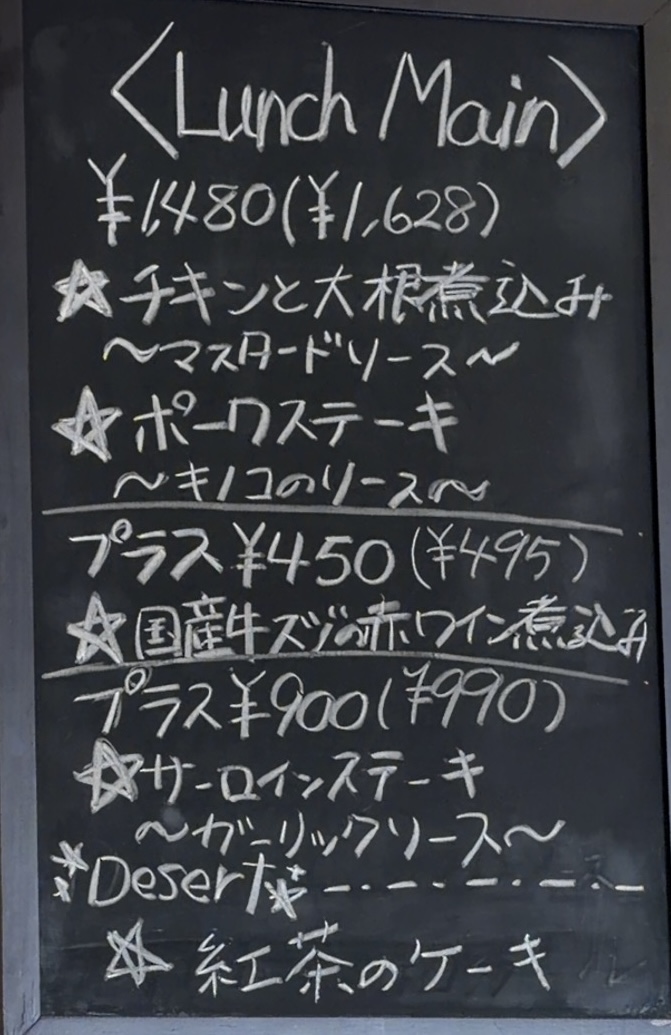 〈Lunch Main〉
¥1,480(¥1,628)
☆チキンと大根煮込み
～マスタードソース～
☆ポークステーキ
～キノコのソース～
プラス¥450(¥495)
☆国産牛スジの赤ワイン煮込み
プラス¥900(¥990)
☆サーロインステーキ
～ガーリックソース～
Desert
☆紅茶のケーキ